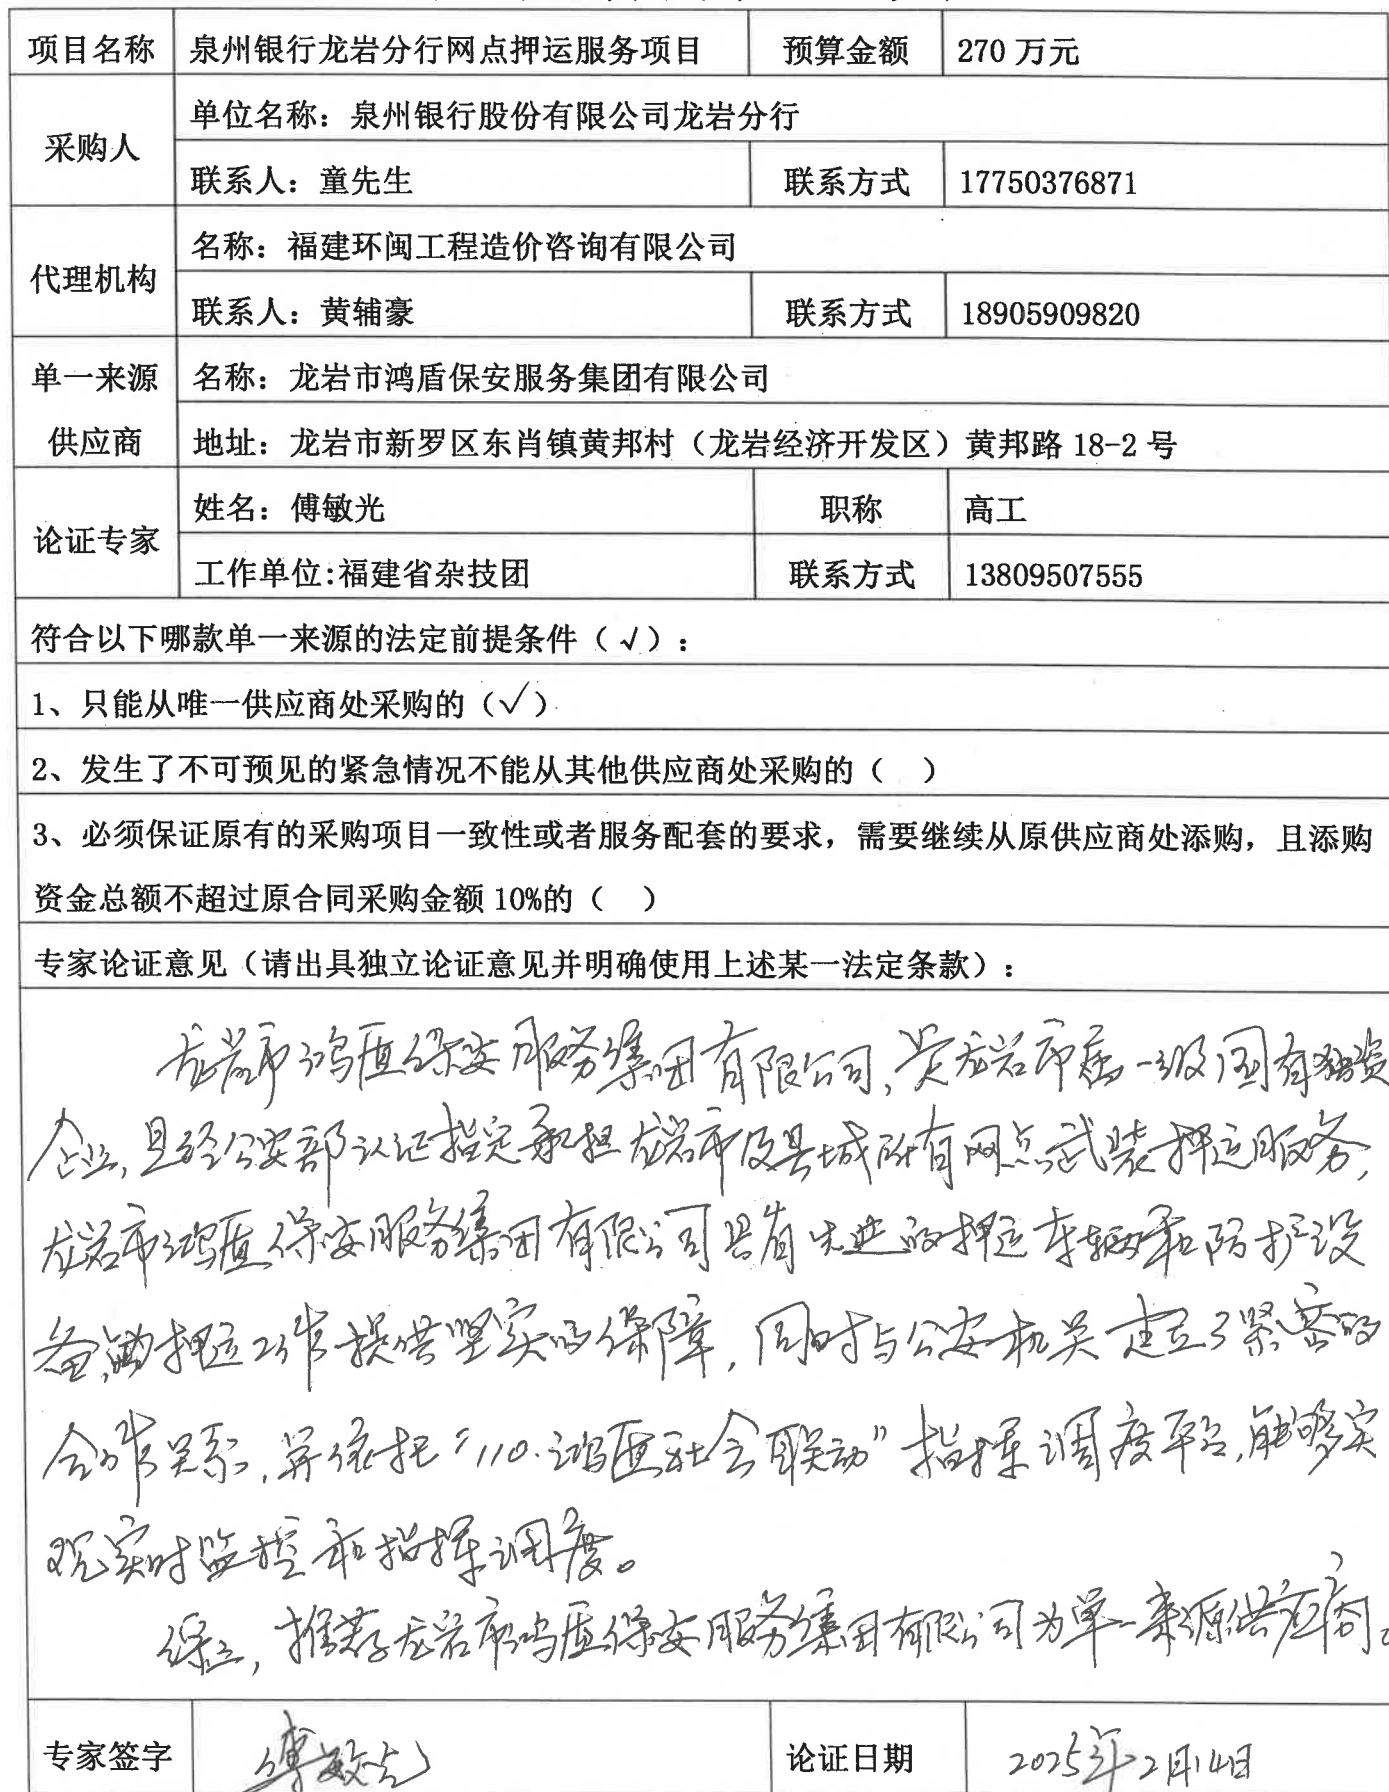 项目名称 泉州银行龙岩分行网点押运服务项目 预算金额 270 万元
采购人 单位名称：泉州银行股份有限公司龙岩分行
联系人：童先生 联系方式 17750376871
代理机构 名称：福建环闽工程造价咨询有限公司
联系人：黄辅豪 联系方式 18905909820
单一来源 名称：龙岩市鸿盾保安服务集团有限公司
供应商 地址：龙岩市新罗区东肖镇黄邦村（龙岩经济开发区）黄邦路 18-2 号
论证专家 姓名：傅敏光 职称 高工
工作单位:福建省杂技团 联系方式 13809507555
符合以下哪款单一来源的法定前提条件（√）：
1、只能从唯一供应商处采购的（√）
2、发生了不可预见的紧急情况不能从其他供应商处采购的（ ）
3、必须保证原有的采购项目一致性或者服务配套的要求，需要继续从原供应商处添购，且添购
资金总额不超过原合同采购金额 10%的（ ）
专家论证意见（请出具独立论证意见并明确使用上述某一法定条款）：
龙岩市鸿盾保安服务集团有限公司，是龙岩市属一级国有独资
企业，且经公安部认证指定承担龙岩市及县城所有网点武装押运服务，
龙岩市鸿盾保安服务集团有限公司具有先进的押运车辆和防护设
备，押运工作提供坚实的保障，同时与公安机关建立了紧密的
合作关系，并依托“110·鸿盾社会联动”指挥调度平台，能够实
现实时监控和指挥调度。
综上，推荐龙岩市鸿盾保安服务集团有限公司为单一来源供应商。
专家签字 傅敏光 论证日期 2025年2月14日